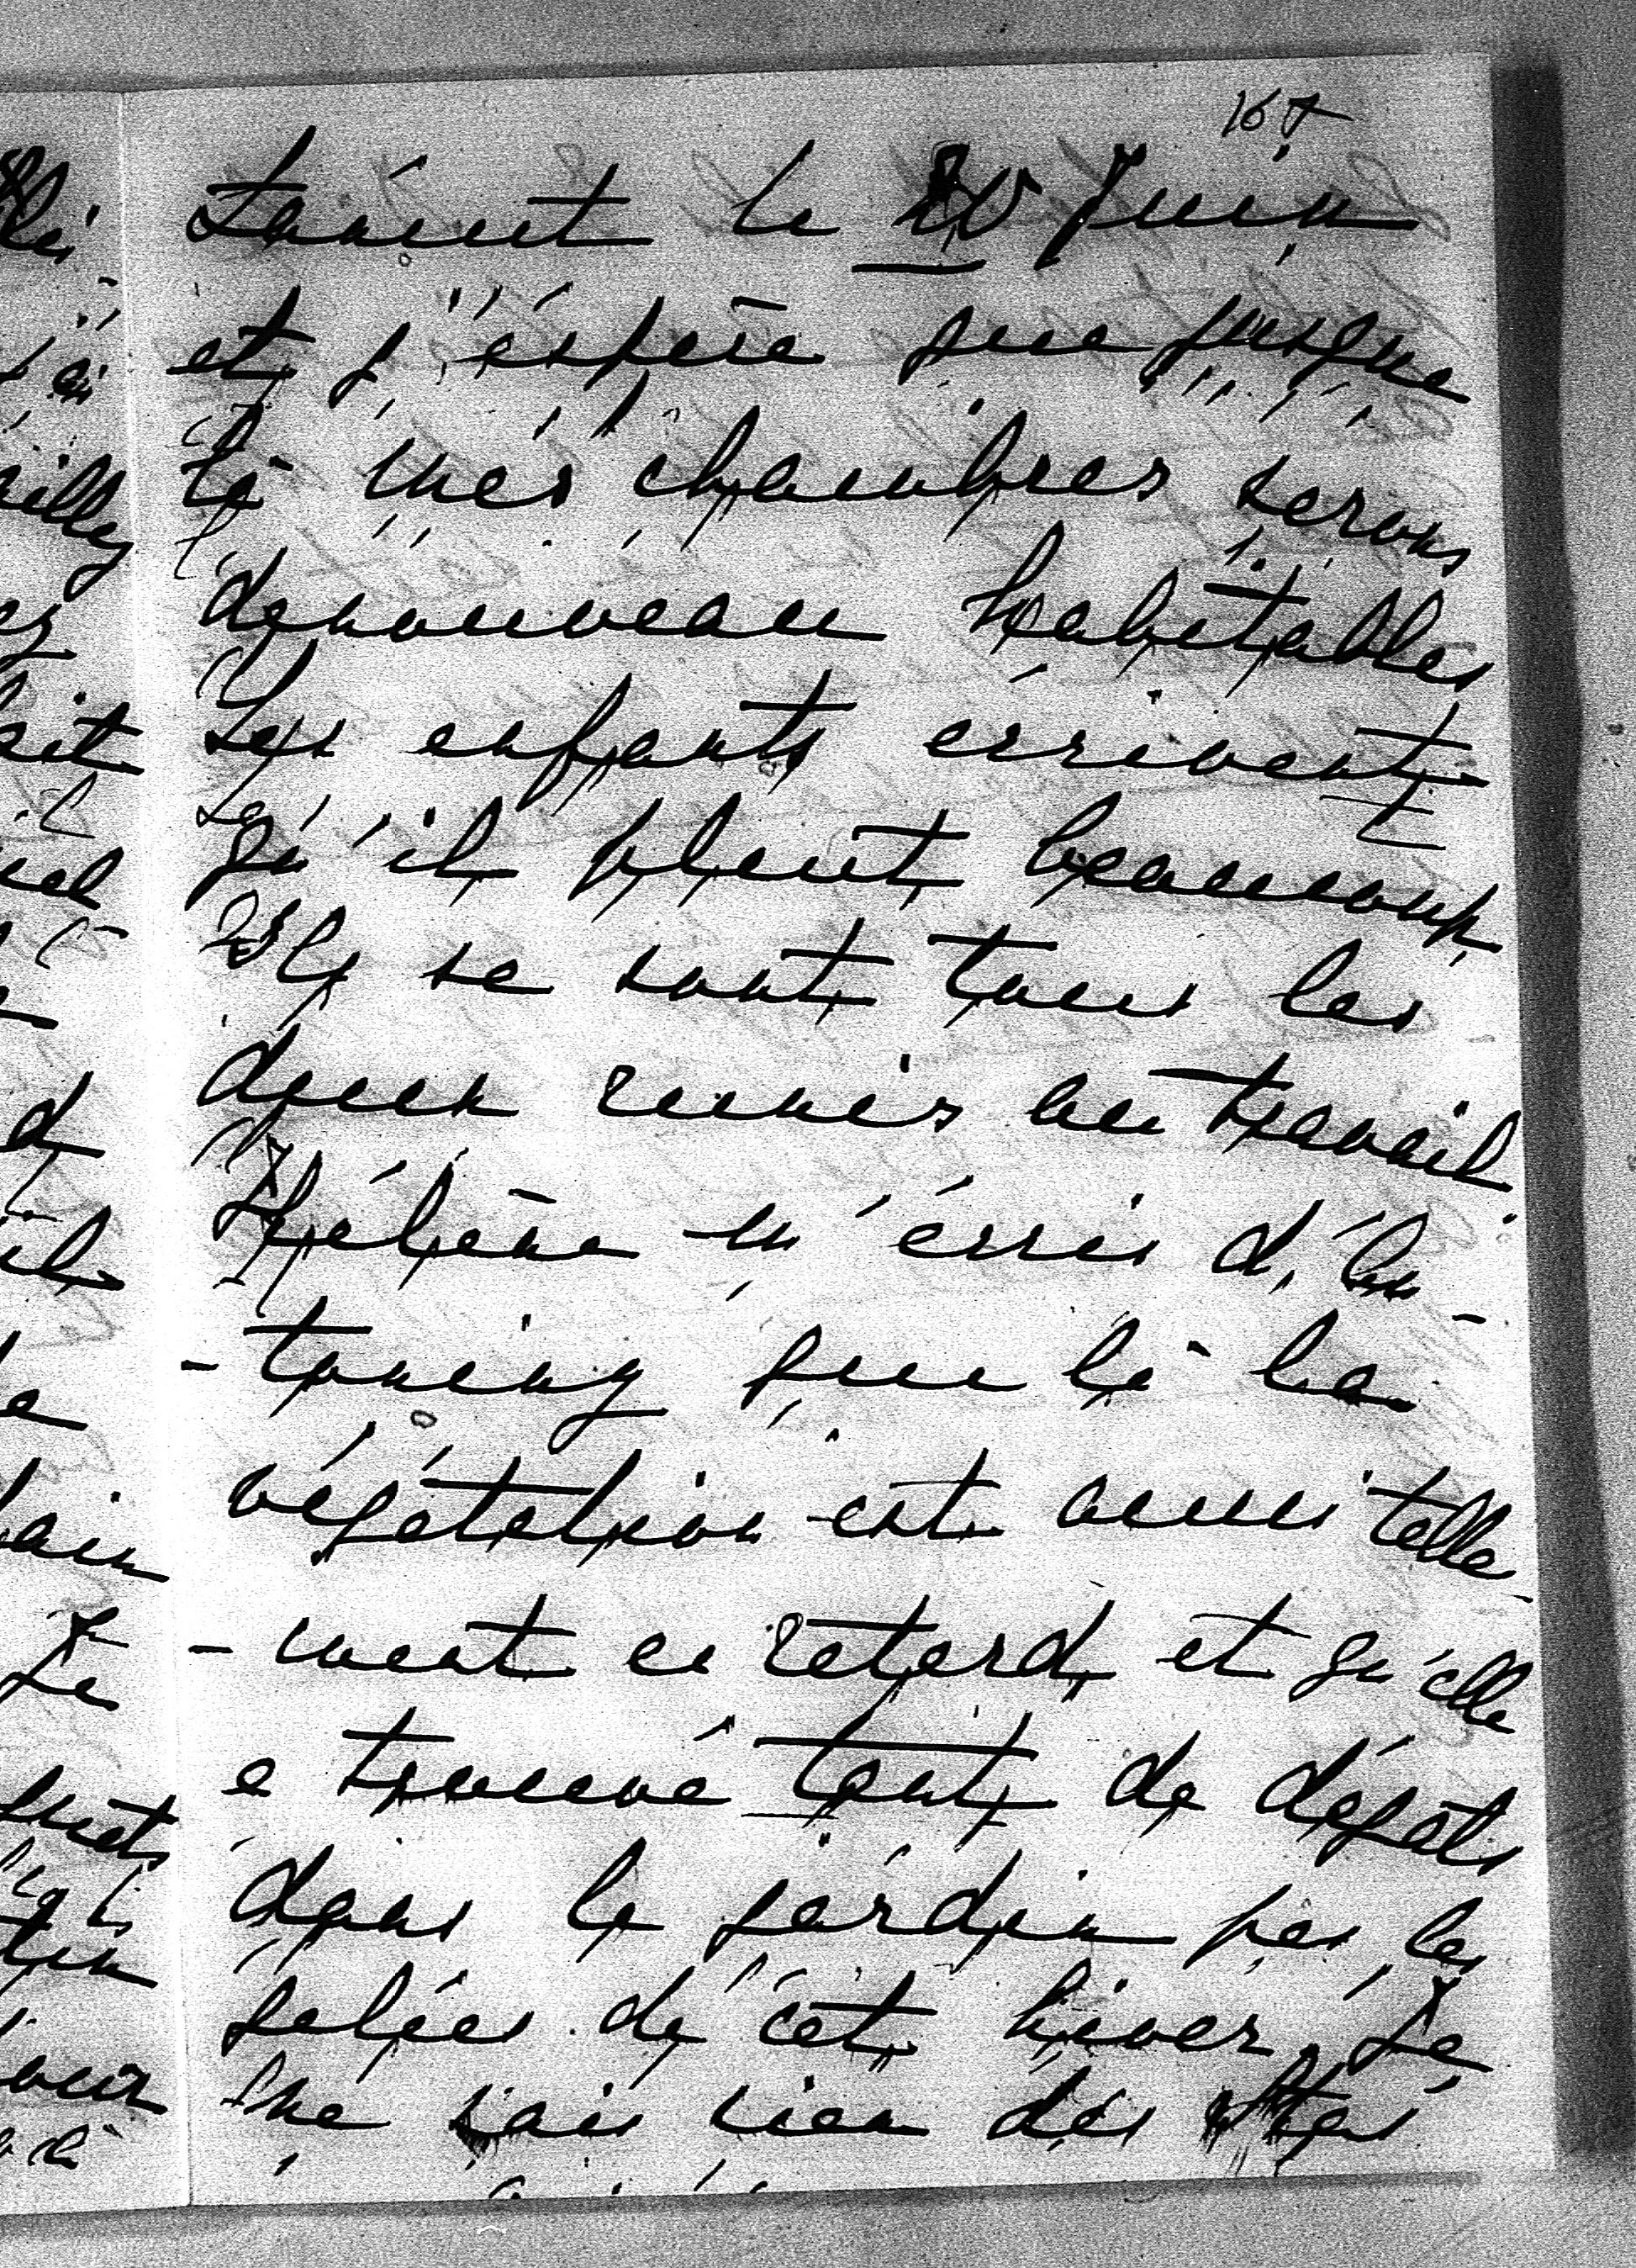 167
le 20 Juin
et j'éspère que jusque
là mes chambres serons
denouveau habitables
Les enfants écrivent
qu'il pleut beaucoup
Ils se sont tous les
deux remis au travail
Hélène m'écris d'An-
-toniny que là la
végétation est aussi telle-
-ment en retard et qu'elle
a trouvé tant de dégâts
dans le jardin par les
gelées de cet hiver. Je
ne sais rien des